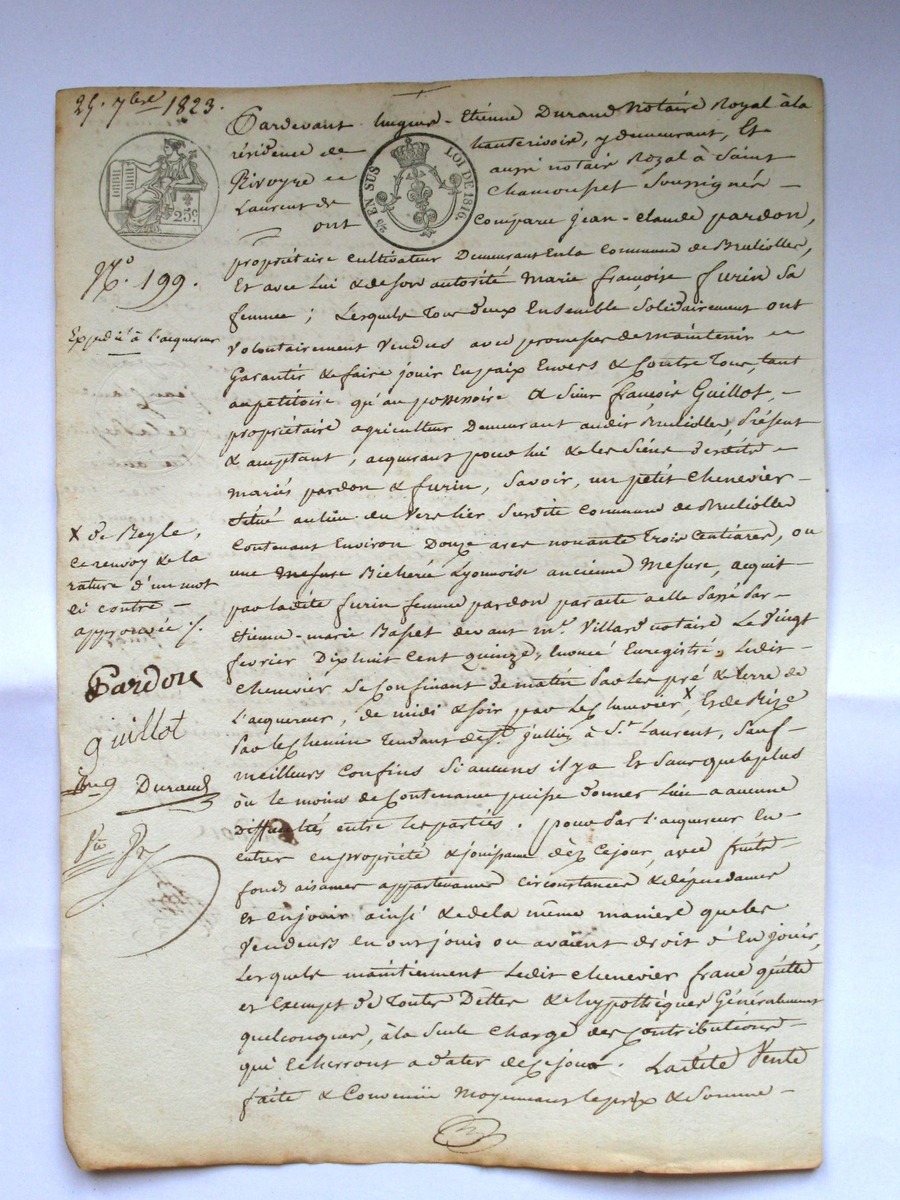 25. 7bre 1823.
Pardevant hugues-Etienne Durand Notaire Royal à la
résidence de hauterivoire, y demeurant, Et
Rivoyre ... aussi notaire Royal à Saint
Laurent de Chamousset Soussignés —
ont Comparu jean-claude pardon,
5c. EN SUS
LOI DE 1816.
25c.
N.o 199.
Expédié à l'acquereur
propriétaire cultivateur Demeurant En la Commune de Brulliolles,
Et avec Lui & de Son autorité Marie françoise furin Sa
femme ; Lesquels Tous deux Ensemble, Solidairement ont
Volontairement Vendus avec promesse de maintenir
Garantir & faire jouir En paix Envers & Contre Tous, tant
au pétitoire qu'au possessoire à Sieur françois Guillot, —
propriétaire agriculteur Demeurant audit Brulliolles, présent
& acceptant, acquérant pour lui & les Siens desdits
mariés pardon & furin, Savoir, un petit Chenevier —
Situé au lieu du Verslier Susdite Commune de Brulliolles
Contenant Environ Douze ares nonante Trois Centiares, ou
une Mesure Bicherée Lyonnoise ancienne Mesure, acquit —
par ladite furin femme pardon par acte à elle passé Par
Etienne-marie Basset devant me. Villard notaire Le Vingt
février Dix huit Cent quinze, Enoncé Enregistré, Ledit
Chenevier Se Confinant de matin Par les pré & terre de
L'acquereur, de midi & Soir par Les Chenevier X, Et de Bize
Par le Chemin Tendant de St. jullin à St. Laurent, Sauf —
meilleurs Confins Si aucuns il y a Et Sans que le plus
où le moins de Contenance puisse Donner Lieu à aucune
Difficultés entre les parties. pour Par l'acquereur En
entrer en propriété & jouissance dèz Ce jour, avec fruits
fonds aisances appartenances circonstances & dépendances
Et en jouir ainsi & de la même maniere que les
Vendeurs en ont jouis ou avaient droit d'En jouir,
Lesquels maintiennent Ledit Chenevier franc quitte
et Exempt de Toutes Dettes & hypothèques Généralement
quelconques, à la Seule Charge des Contributions —
qui Echerront à dater de Ce jour. Ladite Vente
faite & Convenüe Moyennant le prix & Somme —
X de Reyle,
ce renvoy & la
rature d'un mot
ci contre —
approuvée ./.
Pardon
guillot
Durand